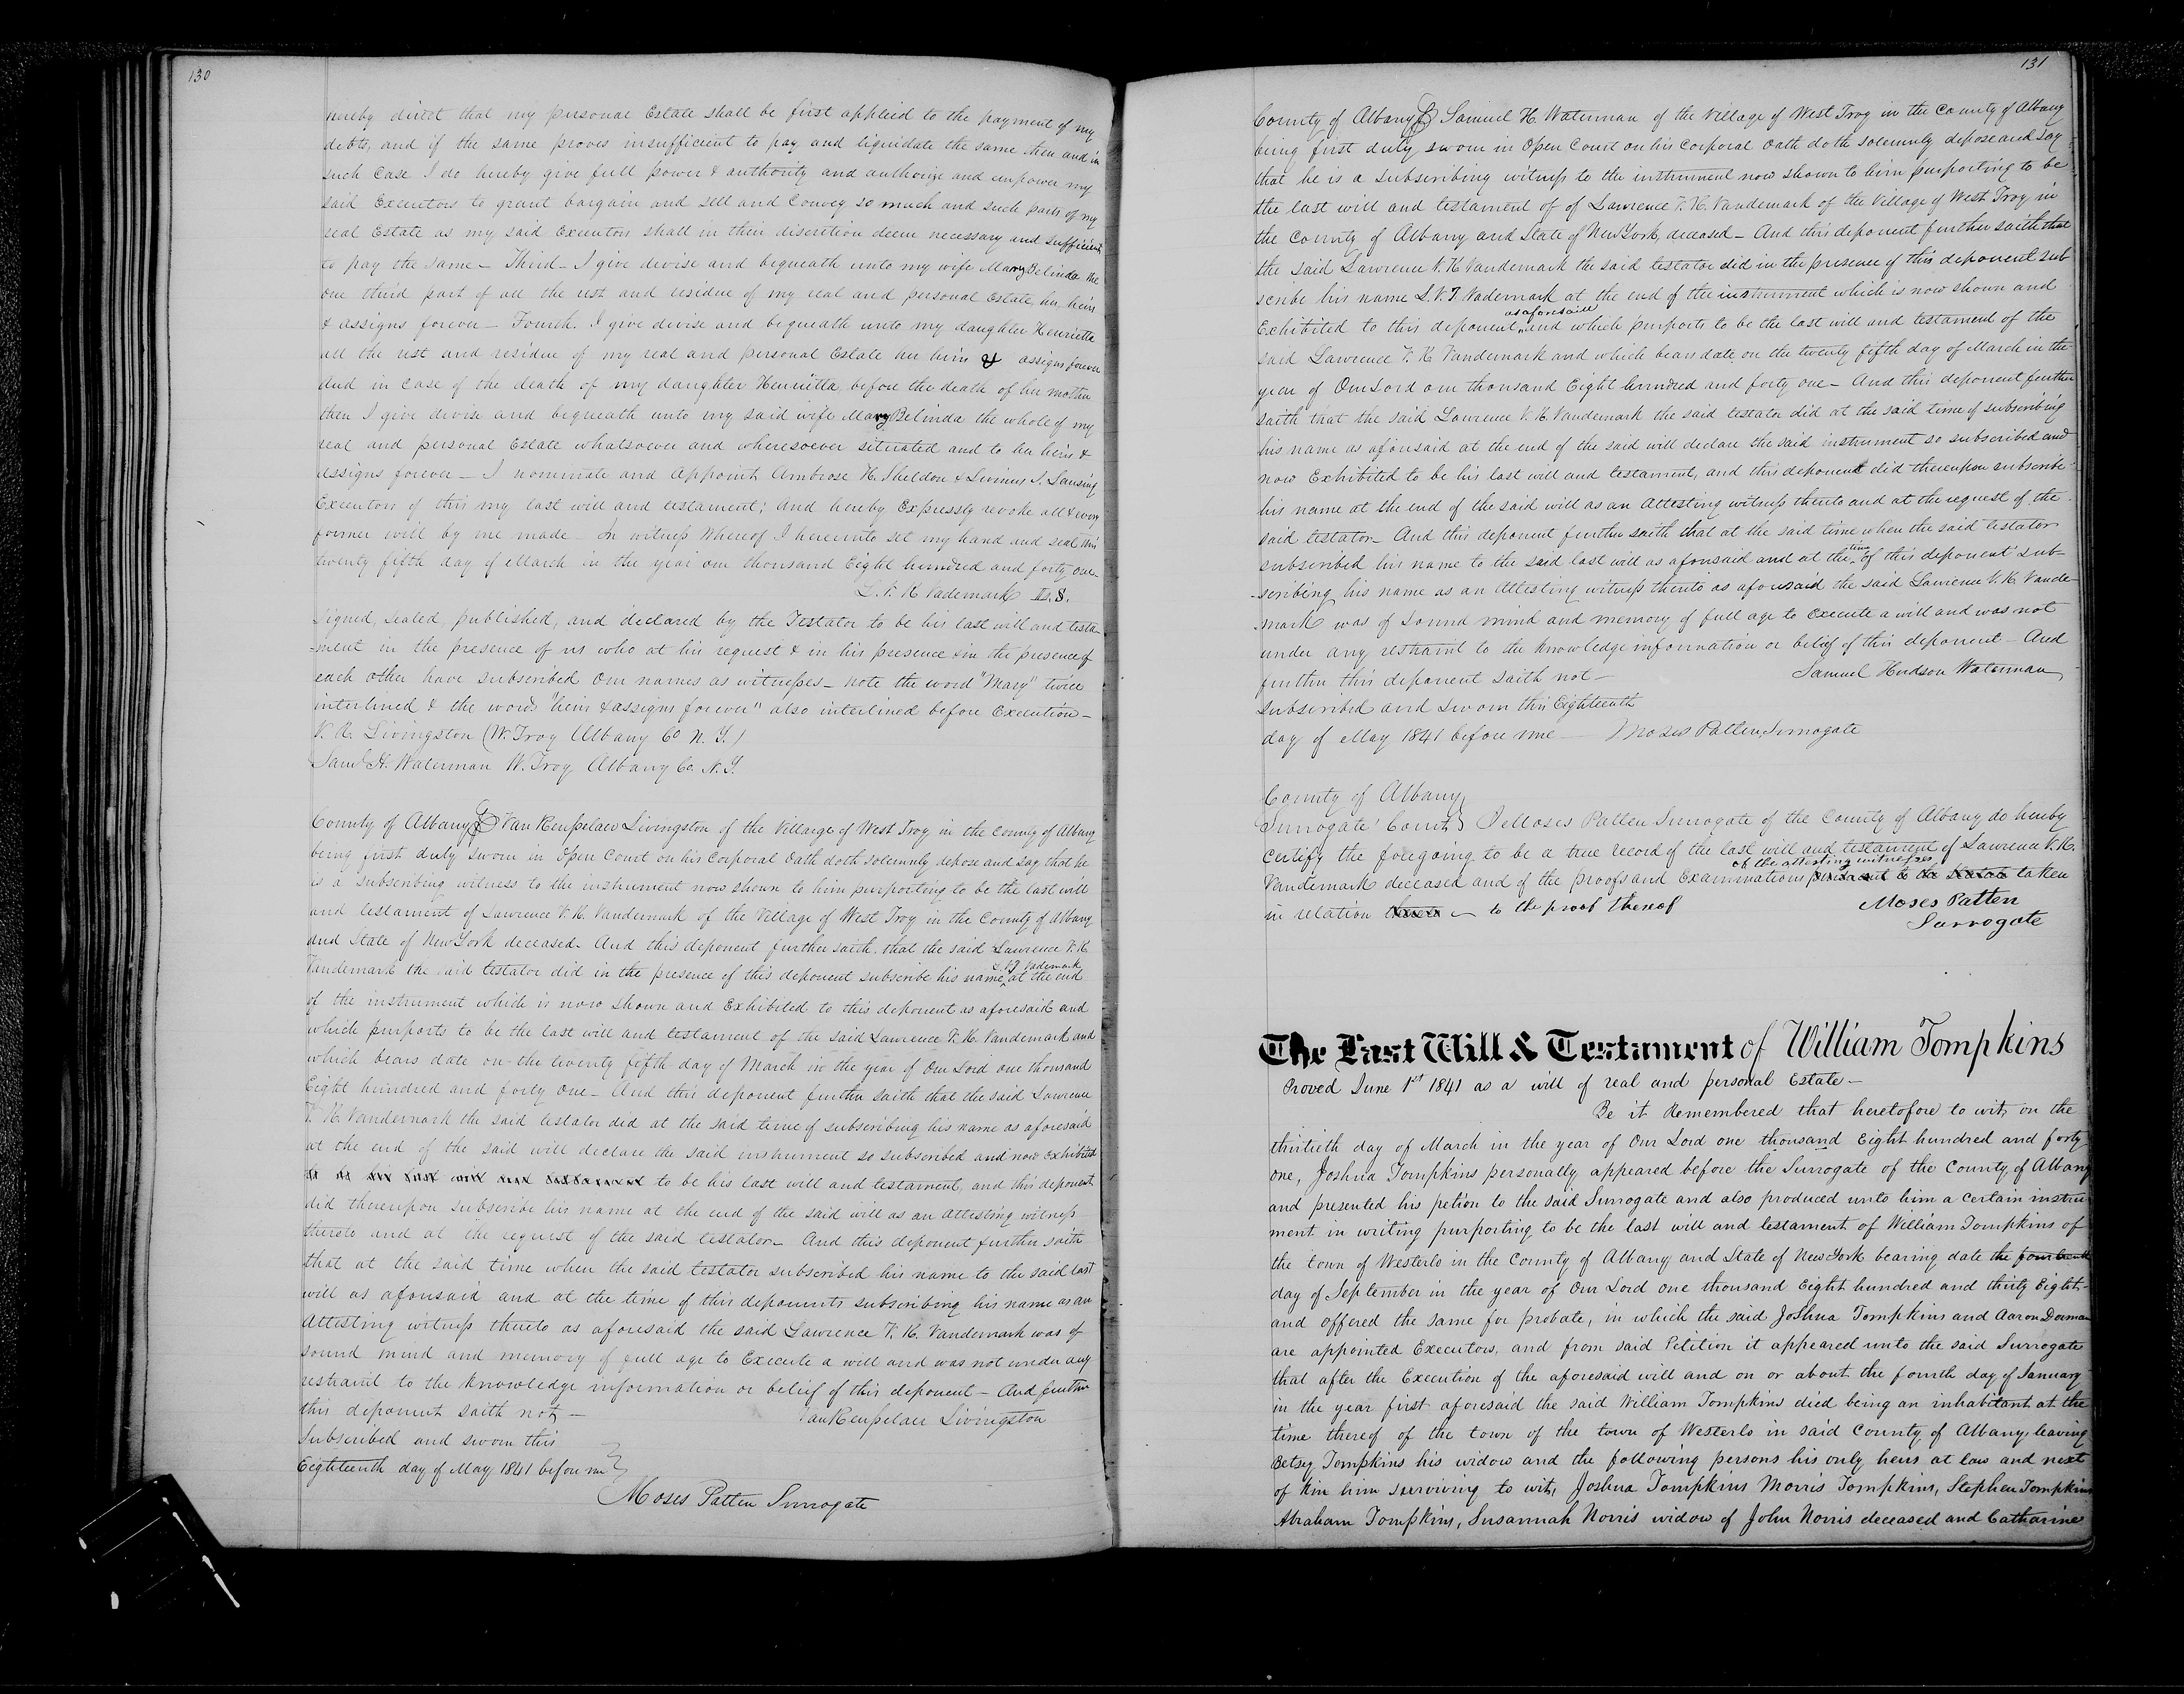 130
hereby direct that my personal Estate shall be first applied to the payment of my
debts, and if the same proves insufficient to pay and liquidate the same then and in
such Case I do hereby give full power & authority and authorize and empower my
said Executors to grant bargain and sell and Convey so much and such parts of my
real Estate as my said Executors shall in their discretion deem necessary and sufficient
to pay the same – Third – I give devise and bequeath unto my wife Mary Belinda the
one third part of all the rest and residue of my real and personal Estate, her heirs
& assigns forever – Fourth. I give devise and bequeath unto my daughter Henrietta
all the rest and residue of my real and personal Estate her heirs & assigns forever
And in Case of the death of my daughter Henrietta before the death of her mother
then I give devise and bequeath unto my said wife Mary Belinda the whole of my
real and personal Estate whatsoever and wheresoever situated and to her heirs &
assigns forever – I nominate and appoint Ambrose H. Sheldon & Livinus S. Lansing
Executors of this my last will and testament; And hereby Expressly revoke all & every
former will by me made – In witness Whereof I hereunto set my hand and seal this
twenty fifth day of March in the year one thousand Eight hundred and forty one –
L. V. K Vademark L. S.
Signed, Sealed, published, and declared by the Testator to be his last will and testa-
-ment in the presence of us who at his request & in his presence & in the presence of
each other have subscribed our names as witnesses – note the word "Mary" twice
interlined & the words "heirs & assigns forever" also interlined before Execution –
V. R. Livingston (W. Troy Albany Co N. Y.)
Saml H. Waterman W. Troy Albany Co. N. Y.
County of Albany ss Van Rensselaer Livingston of the Village of West Troy in the County of Albany
being first duly sworn in Open Court on his Corporal Oath doth solemnly depose and say that he
is a subscribing witness to the instrument now shown to him purporting to be the last will
and testament of Lawrence V. K. Vandemark of the Village of West Troy in the County of Albany
and State of New York deceased – And this deponent further saith that the said Lawrence V. K.
Vandemark the said testator did in the presence of this deponent subscribe his name L. V. J. Vademark at the end
of the instrument which is now shown and Exhibited to this deponent as aforesaid and
which purports to be the last will and testament of the said Lawrence V. K. Vandemark and
which bears date on the twenty fifth day of March in the year of Our Lord one thousand
Eight hundred and forty one – And this deponent further saith that the said Lawrence
V. K. Vandemark the said testator did at the said time of subscribing his name as aforesaid
at the end of the said will declare the said instrument so subscribed and now exhibited
to be his last will and testament to be his last will and testament, and this deponent
did thereupon subscribe his name at the end of the said will as an attesting witness
thereto and at the request of the said testator – And this deponent further saith
that at the said time when the said testator subscribed his name to the said last
will as aforesaid and at the time of this deponents subscribing his name as an
attesting witness thereto as aforesaid the said Lawrence V. K. Vandemark was of
sound mind and memory of full age to Execute a will and was not under any
restraint to the knowledge information or belief of this deponent – And further
this deponent saith not –
Van Rensselaer Livingston
Subscribed and sworn this
Eighteenth day of May 1841 before me
Moses Patten Surrogate
131
County of Albany ss Samuel H. Waterman of the Village of West Troy in the County of Albany
being first duly sworn in Open Court on his Corporal Oath doth solemnly depose and say
that he is a subscribing witness to the instrument now shown to him purporting to be
the last will and testament of of Lawrence V. K. Vandemark of the Village of West Troy in
the County of Albany and State of New York, deceased – And this deponent further saith that
the said Lawrence V. K Vandemark the said testator did in the presence of this deponent sub
scribe his name L. V. J. Vademark at the end of the instrument which is now shown and
Exhibited to this deponent as aforesaid and which purports to be the last will and testament of the
said Lawrence V. K. Vandemark and which bears date on the twenty fifth day of March in the
year of Our Lord one thousand Eight hundred and forty one – And this deponent further
saith that the said Lawrence V. K. Vandemark the said testator did at the said time of subscribing
his name as aforesaid at the end of the said will declare the said instrument so subscribed and
now Exhibited to be his last will and testament, and this deponent did thereupon subscribe
his name at the end of the said will as an Attesting witness thereto and at the request of the
said testator – And this deponent further saith that at the said time when the said testator
subscribed his name to the said last will as aforesaid and at the time of this deponent sub-
-scribing his name as an attesting witness thereto as aforesaid the said Lawrence V. K. Vande-
mark was of sound mind and memory of full age to Execute a will and was not
under any restraint to the knowledge information or belief of this deponent – And
further this deponent saith not –
Samuel Hudson Waterman
Subscribed and sworn this Eighteenth
day of May 1841 before me – Moses Patten, Surrogate
County of Albany
Surrogate' Court I Moses Patten Surrogate of the County of Albany do hereby
Certify the foregoing to be a true record of the last will and testament of Lawrence V. K.
Vandemark deceased and of the proofs and Examinations of the attesting witnesses taken
in relation to the proof thereof
Moses Patten
Surrogate
The Last Will & Testament of William Tompkins
Proved June 1st 1841 as a will of real and personal Estate –
Be it Remembered that heretofore to wit, on the
thirtieth day of March in the year of Our Lord one thousand Eight hundred and forty
one, Joshua Tompkins personally appeared before the Surrogate of the County of Albany
and presented his petion to the said Surrogate and also produced unto him a certain instru
ment in writing purporting to be the last will and testament of William Tompkins of
the town of Westerlo in the County of Albany and State of New York bearing date the fourteenth
day of September in the year of Our Lord one thousand Eight hundred and thirty Eight –
and offered the same for probate, in which the said Joshua Tompkins and Aaron Dorman
are appointed Executors, and from said Petition it appeared unto the said Surrogate
that after the Execution of the aforesaid will and on or about the fourth day of January
in the year first aforesaid the said William Tompkins died being an inhabitant at the
time thereof of the town of the town of Westerlo in said County of Albany, leaving
Betsey Tompkins his widow and the following persons his only heirs at law and next
of kin him surviving to wit, Joshua Tompkins Morris Tompkins, Stephen Tompkins
Abraham Tompkins, Susannah Norris widow of John Norris deceased and Catharine